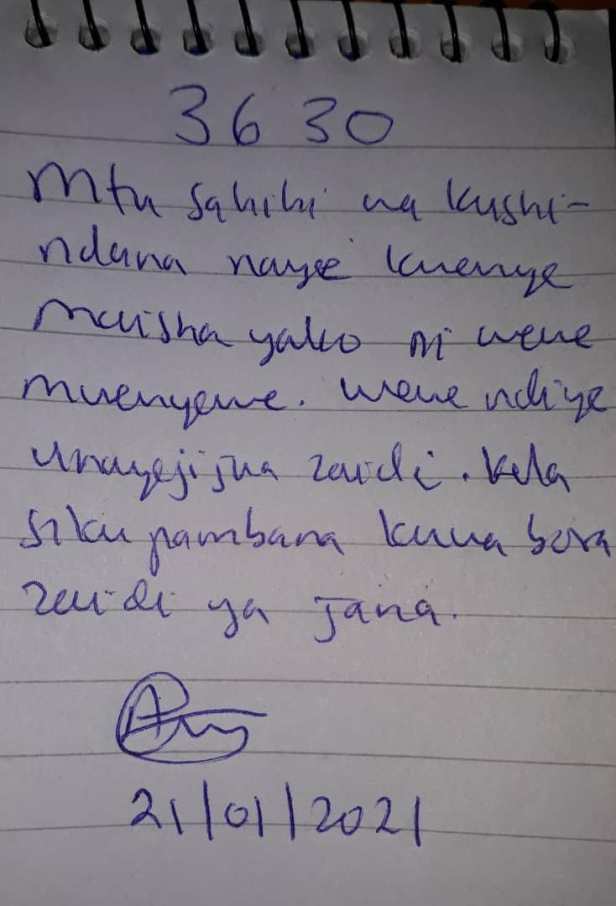 3630
Mtu sahihi wa kushi-
ndana naye kwenye
maisha yako ni wewe
mwenyewe. Wewe ndiye
unayejijua zaidi. Kila
siku pambana kuwa bora
zaidi ya jana.
21/01/2021